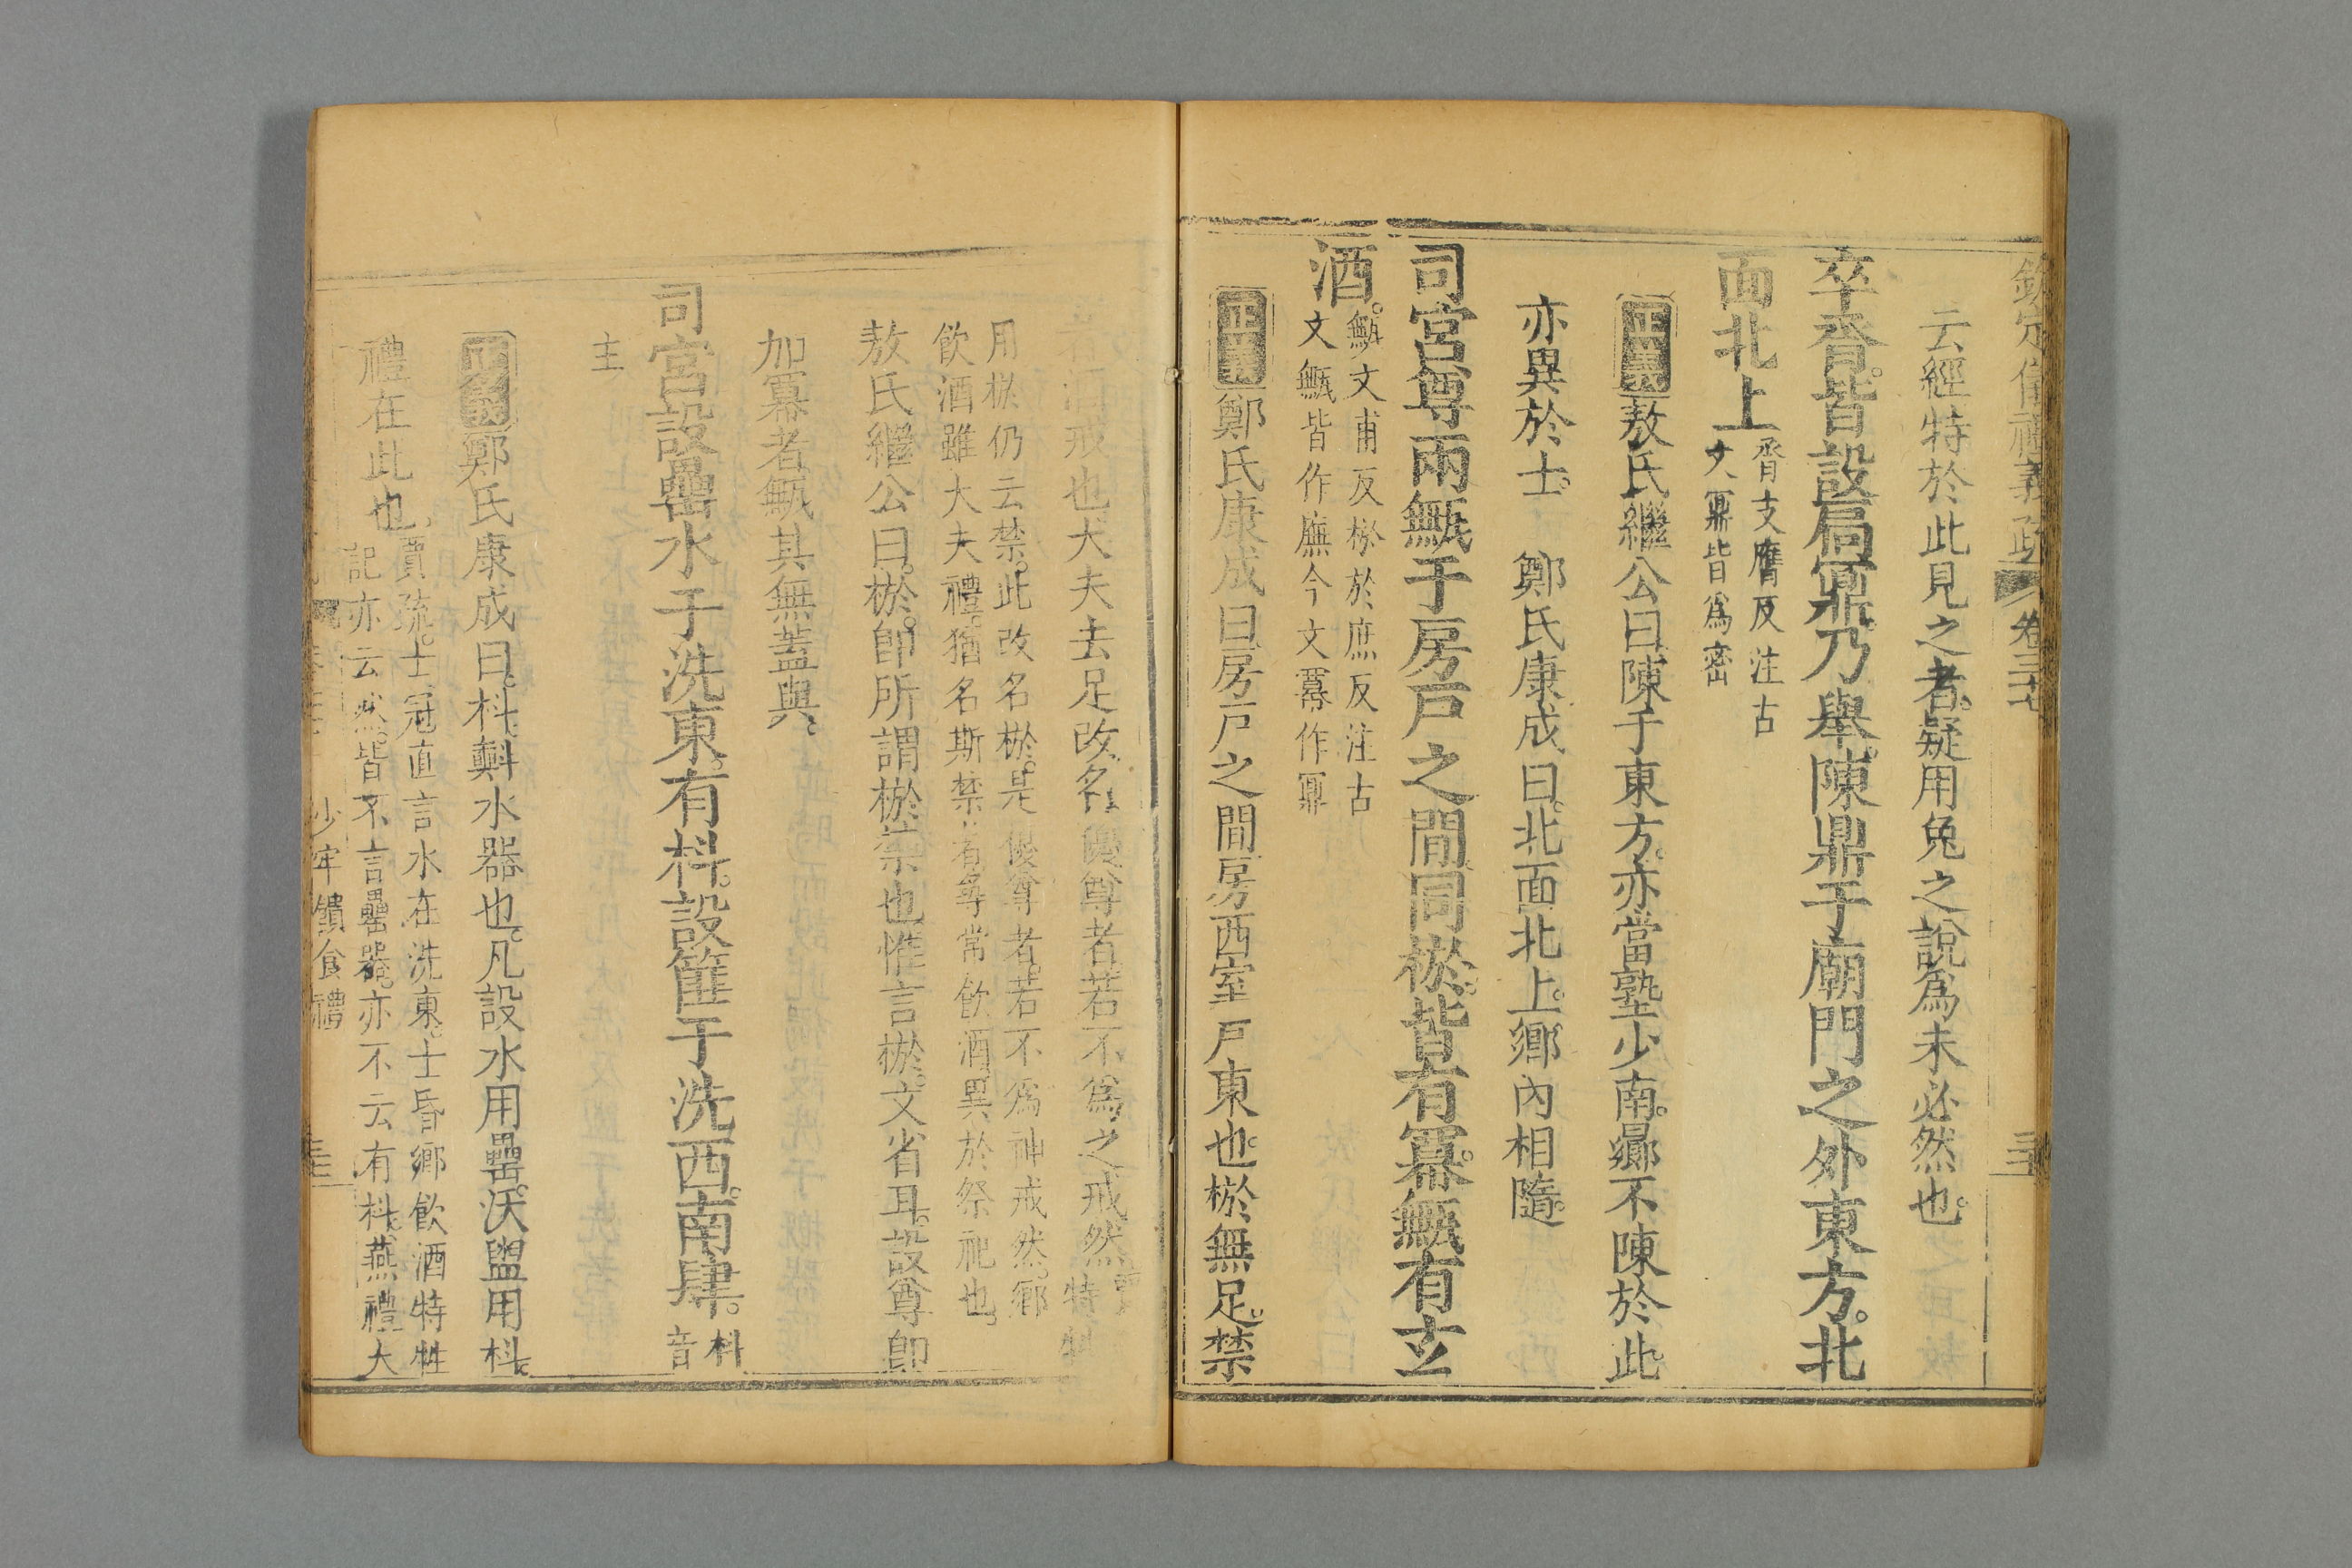 欽定儀禮義疏 卷三十七
云經特於此見之者疑用兔之說為未必然也
卒脀皆設扃鼏乃舉陳鼎于廟門之外東方北
面北上脀支膺反注古
文鼏皆為密
正義敖氏繼公曰陳于東方亦當塾少南鄉不陳於此
亦異於士 鄭氏康成曰北面北上鄉內相隨
司宮尊兩甒于房戶之間同棜皆有冪甒有玄
酒甒文甫反棜於庶反注古
文甒皆作廡今文冪作鼏
正義鄭氏康成曰房戶之間房西室戶東也棜無足禁
者酒戒也大夫去足改名優尊者若不為之戒然
特牲
用棜仍云禁此改名棜是優尊者若不為神戒然鄉
飲酒雖大夫禮猶名斯禁者尋常飲酒異於祭祀也
敖氏繼公曰棜即所謂棜禁也惟言棜文省耳設尊即
加冪者甒其無蓋與
司宮設罍水于洗東有枓設篚于洗西南肆枓
音
主
正義鄭氏康成曰枓㪺水器也凡設水用罍沃盥用枓
禮在此也賈疏士冠直言水在洗東士昏鄉飲酒特牲
記亦云然皆不言罍器亦不云有枓燕禮大
少牢饋食禮